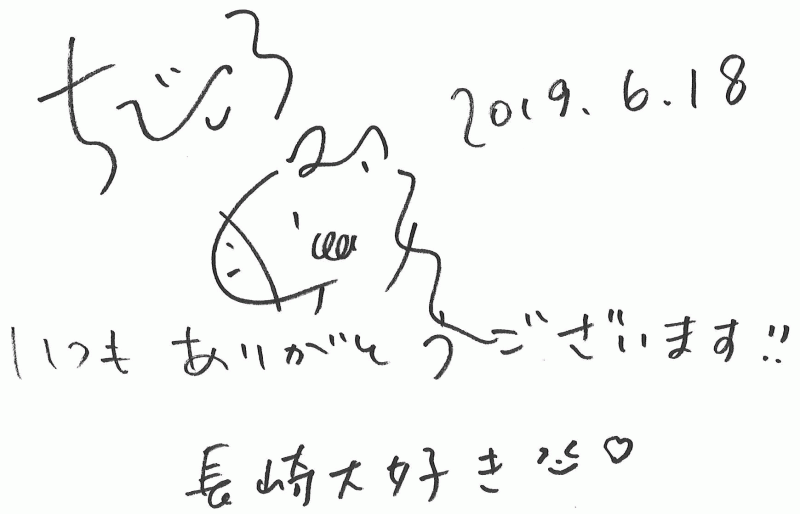 2019.6.18
いつもありがとうございます!!
長崎大好き♡